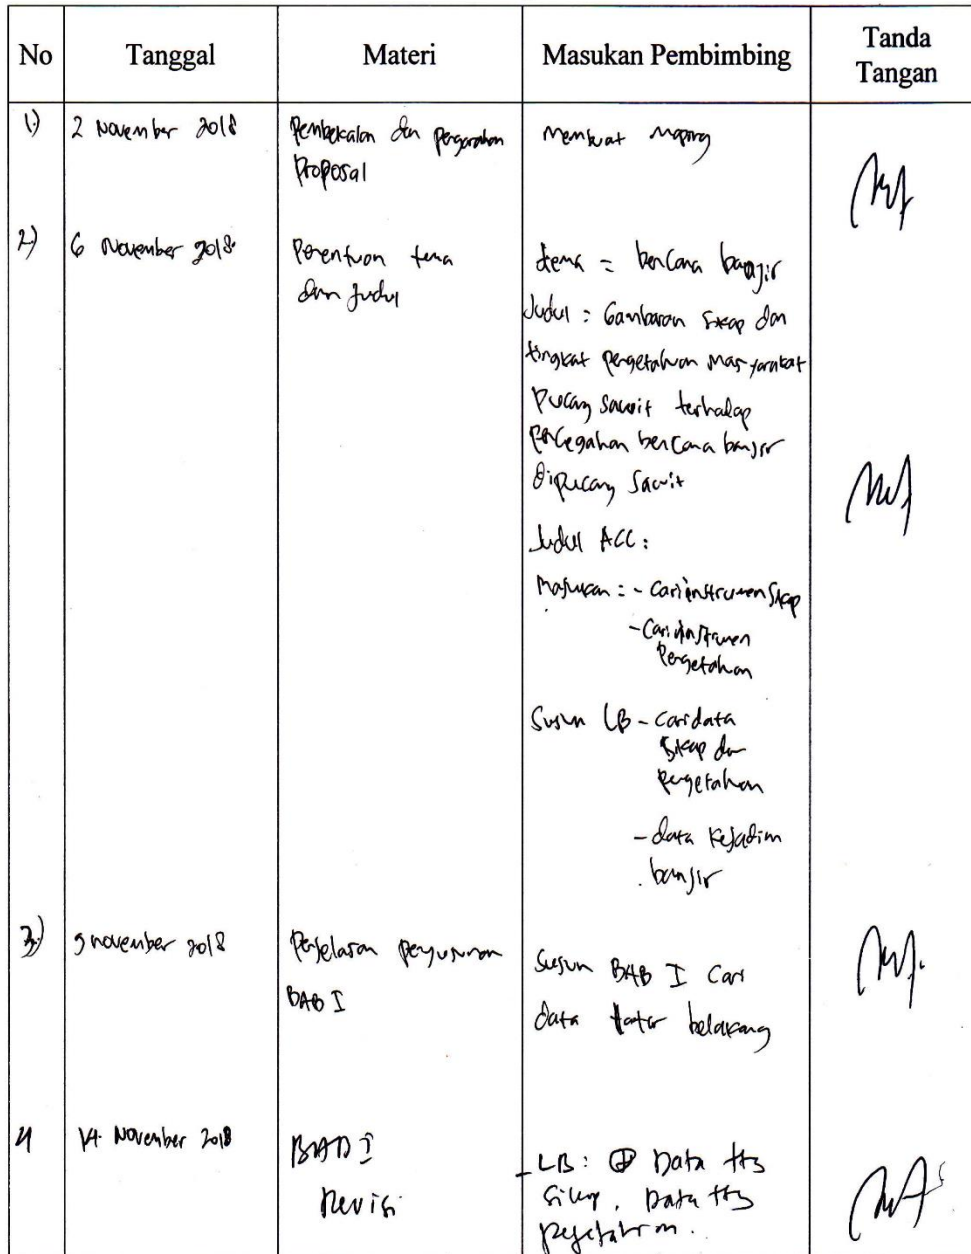 No Tanggal Materi Masukan Pembimbing Tanda
Tangan
1.) 2 November 2018 Pembekalan dan pengarahan membuat maping
Proposal
2.) 6 November 2018 Penentuan tema tema = bencana banjir
dan judul Judul = Gambaran sikap dan
tingkat pengetahuan masyarakat
Pucang sawit terhadap
pencegahan bencana banjir
dipucang sawit
Judul ACC :
masukan = - cari instrumen sikap
- Cari instrumen
pengetahuan
Susun LB - cari data
sikap dan
pengetahuan
- data kejadian
banjir
3.) 9 november 2018 Penjelasan penyusunan Susun BAB I cari
BAB I data latar belakang
4 14 November 2018 BAB I - LB : + Data ttg
Revisi sikap, Data ttg
pengetahuan.